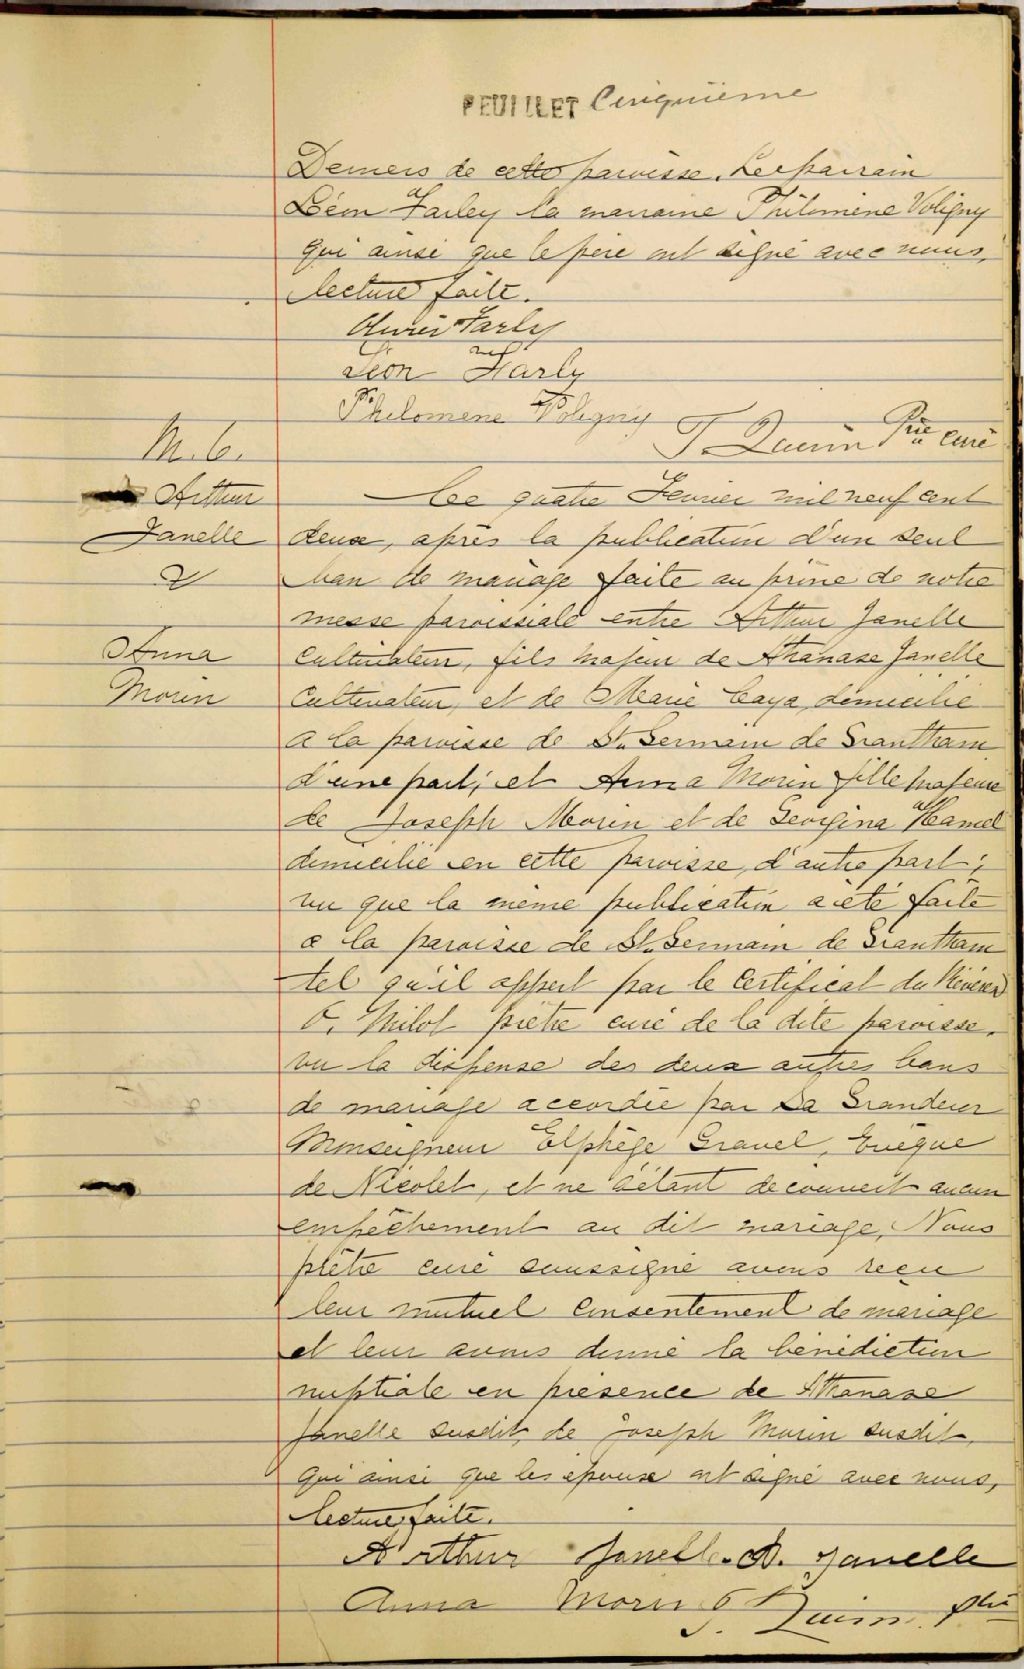 FEUILLET Cinquième
Demers de cette paroisse. Le parrain
Léon Farley la marraine Philomène Voligny
qui ainsi que le père ont signé avec nous,
lecture faite.
Olivier Farly
Léon Farly
Philomène Voligny
T. Quirin Ptre curé
M. 6.
Arthur
Janelle
&
Anna
Morin
Le quatre Février mil neuf cent
deux, après la publication d'un seul
ban de mariage faite au prône de notre
messe paroissiale entre Arthur Janelle
cultivateur, fils majeur de Athanase Janelle
cultivateur, et de Marie Caya, domicilié
a la paroisse de St. Germain de Grantham
d'une part; et Anna Morin fille majeure
de Joseph Morin et de Georgina Hamel
domicilié en cette paroisse, d'autre part;
vu que la même publication a été faite
a la paroisse de St. Germain de Grantham
tel qu'il appert par le certificat du Révérend
O. Milot prêtre curé de la dite paroisse.
vu la dispense des deux autres bans
de mariage accordée par Sa Grandeur
Monseigneur Elphège Gravel, Evêque
de Nicolet, et ne s'étant découvert aucun
empêchement au dit mariage, Nous
prêtre curé soussigné avons reçu
leur mutuel consentement de mariage
et leur avons donné la bénédiction
nuptiale en présence de Athanase
Janelle susdit, de Joseph Morin susdit,
qui ainsi que les époux ont signé avec nous,
lecture faite.
Arthur Janelle. A. Janelle
Anna Morin T. Quirin. Ptre